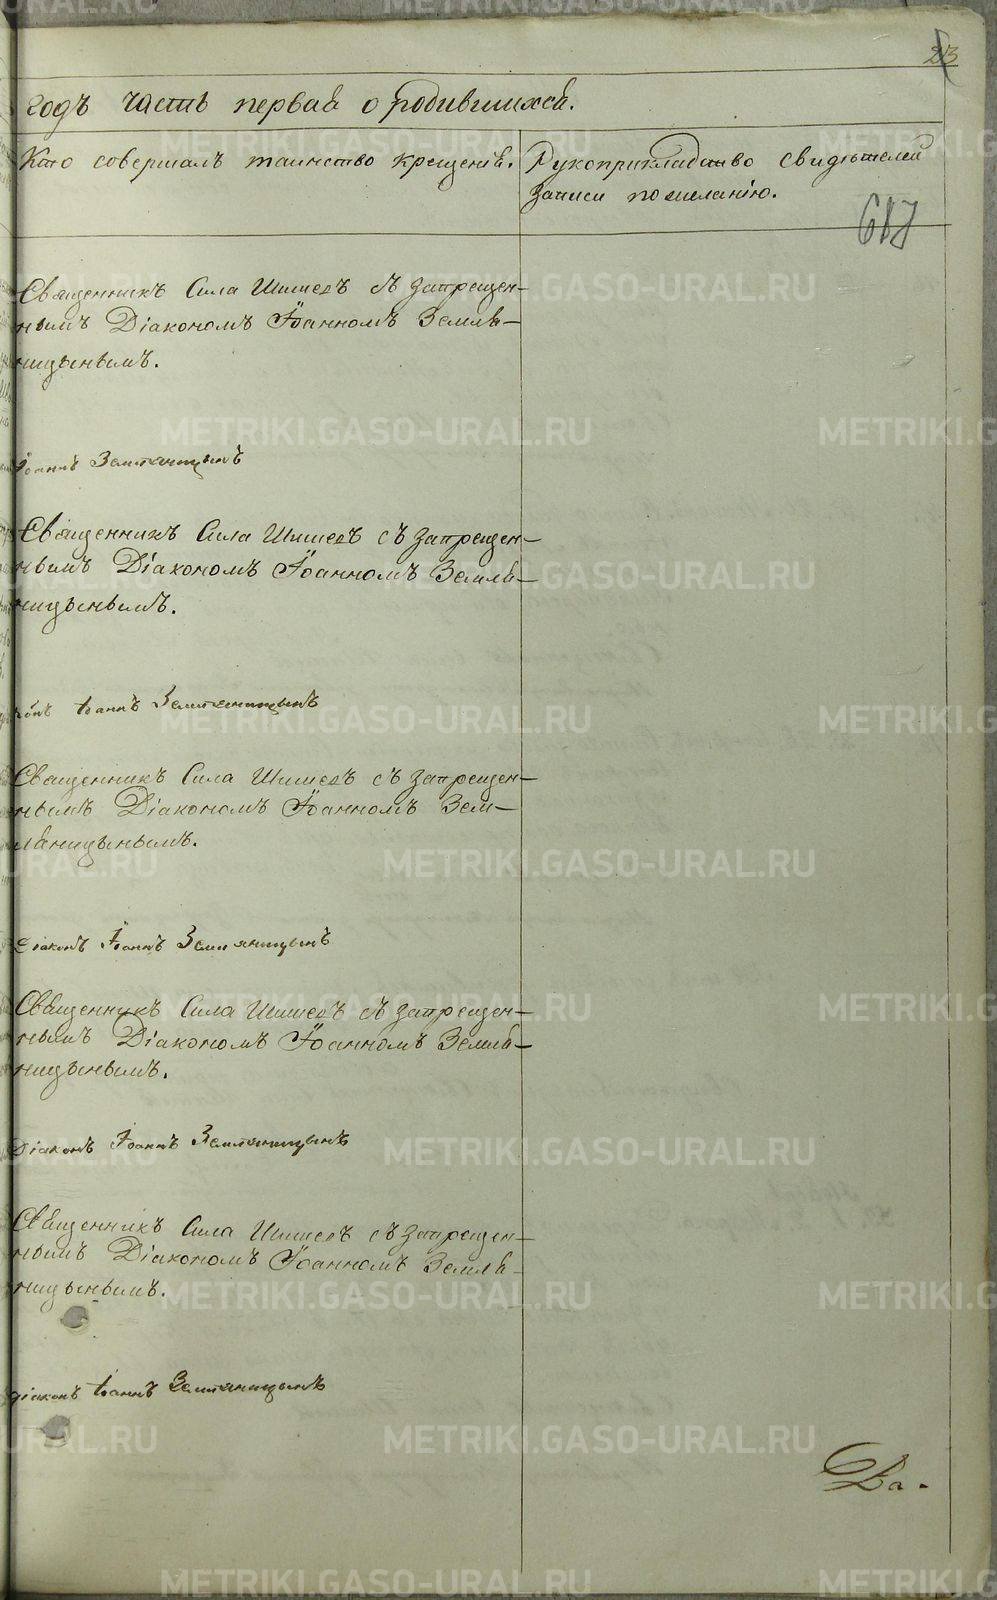 213
годъ часть первая о родившихся.
Кто совершалъ таинство крещенія.
Рукоприкладство свидѣтелей
записи по желанію.
617
Священникъ Сила Шишевъ съ запрещен-
нымъ Діакономъ Іоанномъ Земля-
ницынымъ.
Іоаннъ Земляницынъ
Священникъ Сила Шишевъ съ запрещен-
нымъ Діакономъ Іоанномъ Земля-
ницынымъ.
Іоаннъ Земляницынъ
Священникъ Сила Шишевъ съ запрещен-
нымъ Діакономъ Іоанномъ Зем-
ляницынымъ.
Діаконъ Іоаннъ Земляницынъ
Священникъ Сила Шишевъ съ запрещен-
нымъ Діакономъ Іоанномъ Земля-
ницынымъ.
Діаконъ Іоаннъ Земляницынъ
Священникъ Сила Шишевъ съ запрещен-
нымъ Діакономъ Іоанномъ Земля-
ницынымъ.
діаконъ Іоаннъ Земляницынъ
METRIKI.GASO-URAL.RU